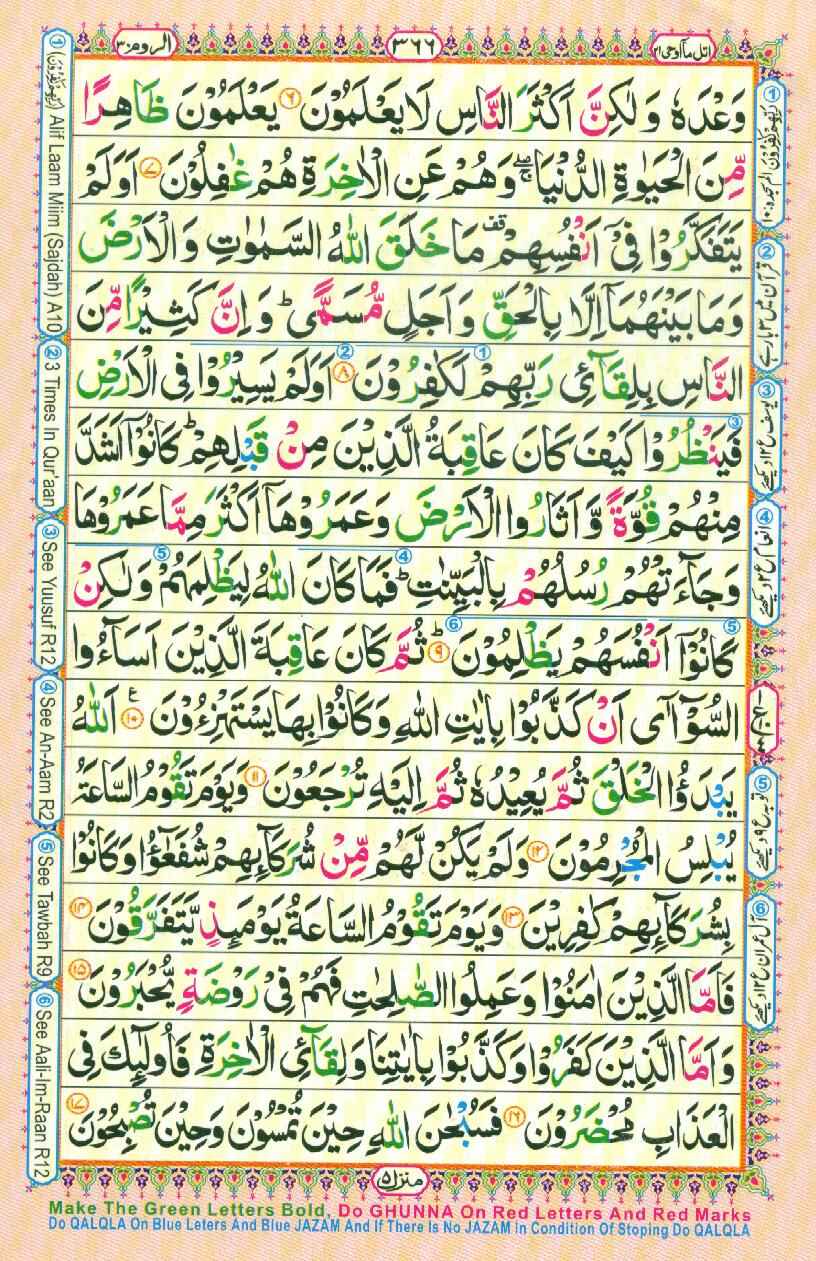 اتل ما اوحی ۲۱
۳۶۶
الروم ۳۰
وَعْدَهٗ وَلٰكِنَّ اَكْثَرَ النَّاسِ لَا يَعْلَمُوْنَ ۝۶ يَعْلَمُوْنَ ظَاهِرًا
مِّنَ الْحَيٰوةِ الدُّنْيَا ۖۚ وَهُمْ عَنِ الْاٰخِرَةِ هُمْ غٰفِلُوْنَ ۝۷ اَوَلَمْ
يَتَفَكَّرُوْا فِيْۤ اَنْفُسِهِمْ ۫ مَا خَلَقَ اللّٰهُ السَّمٰوٰتِ وَالْاَرْضَ
وَمَا بَيْنَهُمَاۤ اِلَّا بِالْحَقِّ وَاَجَلٍ مُّسَمًّى ؕ وَاِنَّ كَثِيْرًا مِّنَ
النَّاسِ بِلِقَآئِ رَبِّهِمْ لَكٰفِرُوْنَ ۝۸ اَوَلَمْ يَسِيْرُوْا فِي الْاَرْضِ
فَيَنْظُرُوْا كَيْفَ كَانَ عَاقِبَةُ الَّذِيْنَ مِنْ قَبْلِهِمْ ؕ كَانُوْۤا اَشَدَّ
مِنْهُمْ قُوَّةً وَّاَثَارُوا الْاَرْضَ وَعَمَرُوْهَاۤ اَكْثَرَ مِمَّا عَمَرُوْهَا
وَجَآءَتْهُمْ رُسُلُهُمْ بِالْبَيِّنٰتِ ؕ فَمَا كَانَ اللّٰهُ لِيَظْلِمَهُمْ وَلٰكِنْ
كَانُوْۤا اَنْفُسَهُمْ يَظْلِمُوْنَ ؕ۝۹ ثُمَّ كَانَ عَاقِبَةَ الَّذِيْنَ اَسَآءُوا
السُّوْٓاٰۤى اَنْ كَذَّبُوْا بِاٰيٰتِ اللّٰهِ وَكَانُوْا بِهَا يَسْتَهْزِءُوْنَ ۝۱۰ اَللّٰهُ
يَبْدَؤُا الْخَلْقَ ثُمَّ يُعِيْدُهٗ ثُمَّ اِلَيْهِ تُرْجَعُوْنَ ۝۱۱ وَيَوْمَ تَقُوْمُ السَّاعَةُ
يُبْلِسُ الْمُجْرِمُوْنَ ۝۱۲ وَلَمْ يَكُنْ لَّهُمْ مِّنْ شُرَكَآئِهِمْ شُفَعٰٓؤُا وَكَانُوْا
بِشُرَكَآئِهِمْ كٰفِرِيْنَ ۝۱۳ وَيَوْمَ تَقُوْمُ السَّاعَةُ يَوْمَئِذٍ يَّتَفَرَّقُوْنَ ۝۱۴
فَاَمَّا الَّذِيْنَ اٰمَنُوْا وَعَمِلُوا الصّٰلِحٰتِ فَهُمْ فِيْ رَوْضَةٍ يُّحْبَرُوْنَ ۝۱۵
وَاَمَّا الَّذِيْنَ كَفَرُوْا وَكَذَّبُوْا بِاٰيٰتِنَا وَلِقَآئِ الْاٰخِرَةِ فَاُولٰٓئِكَ فِي
الْعَذَابِ مُحْضَرُوْنَ ۝۱۶ فَسُبْحٰنَ اللّٰهِ حِيْنَ تُمْسُوْنَ وَحِيْنَ تُصْبِحُوْنَ ۝۱۷
منزل ۵
① Alif Laam Miim (Sajdah) A10
② 3 Times In Qur'aan
③ See Yuusuf R12
④ See An-Aam R2
⑤ See Tawbah R9
⑥ See Aali-Im-Raan R12
② قرآن میں ۳ بار ہے
③ یوسف ع ۱۲ دیکھئے
④ انعام ع ۲ دیکھئے
⑤ توبہ ع ۹ دیکھئے
⑥ آل عمران ع ۱۲ دیکھئے
Make The Green Letters Bold, Do GHUNNA On Red Letters And Red Marks
Do QALQLA On Blue Leters And Blue JAZAM And If There Is No JAZAM In Condition Of Stoping Do QALQLA